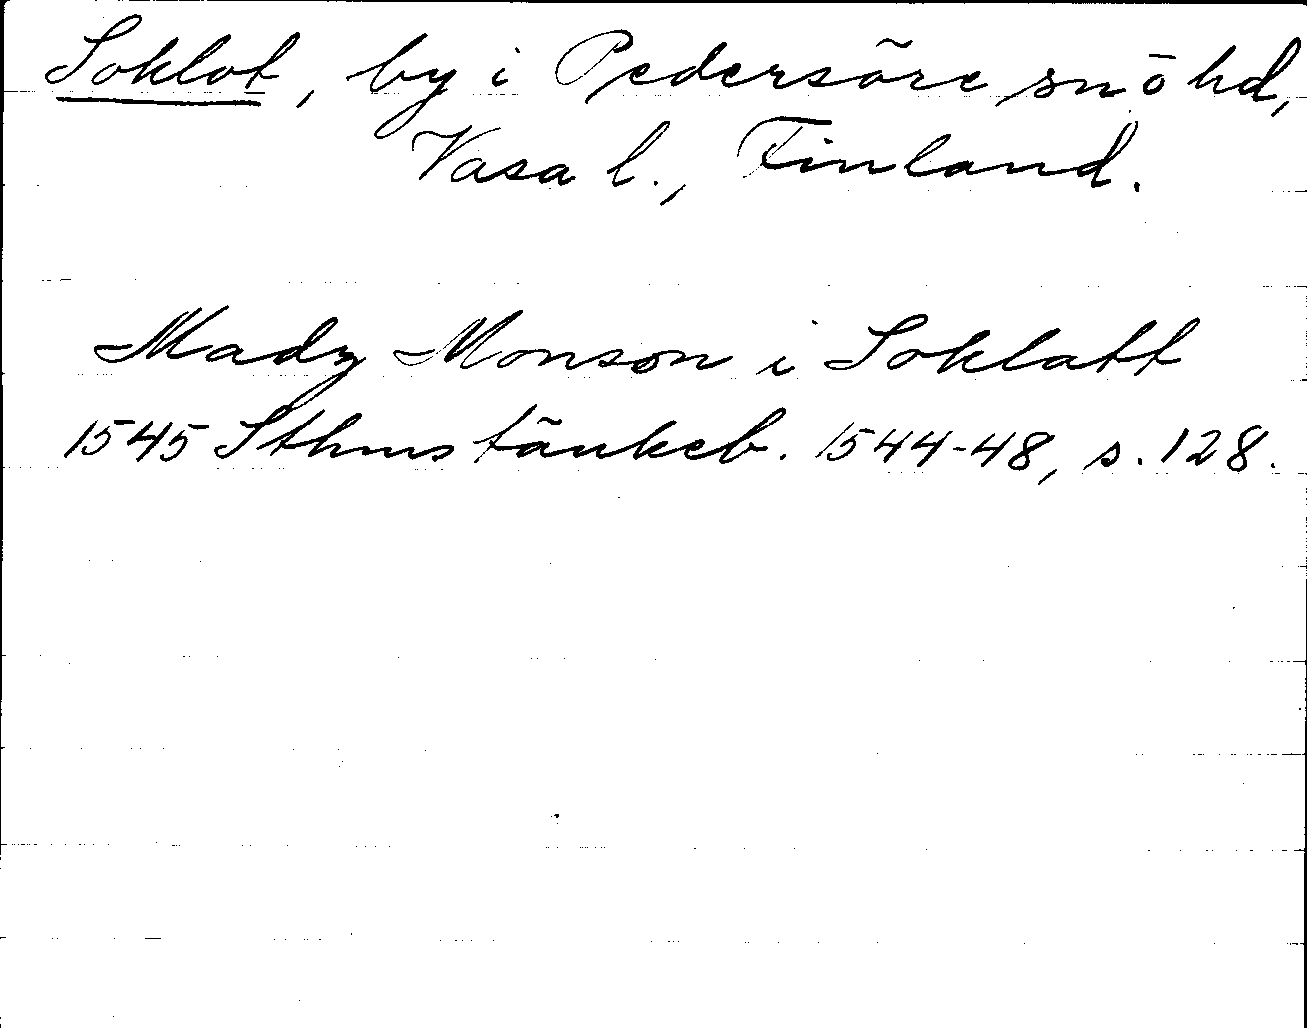 Soklot, by i Pedersöre sn ö hd,
Vasa l., Finland.
Madz Monson i Soklatt
1545 Sthms tänkeb. 1544-48, s. 128.